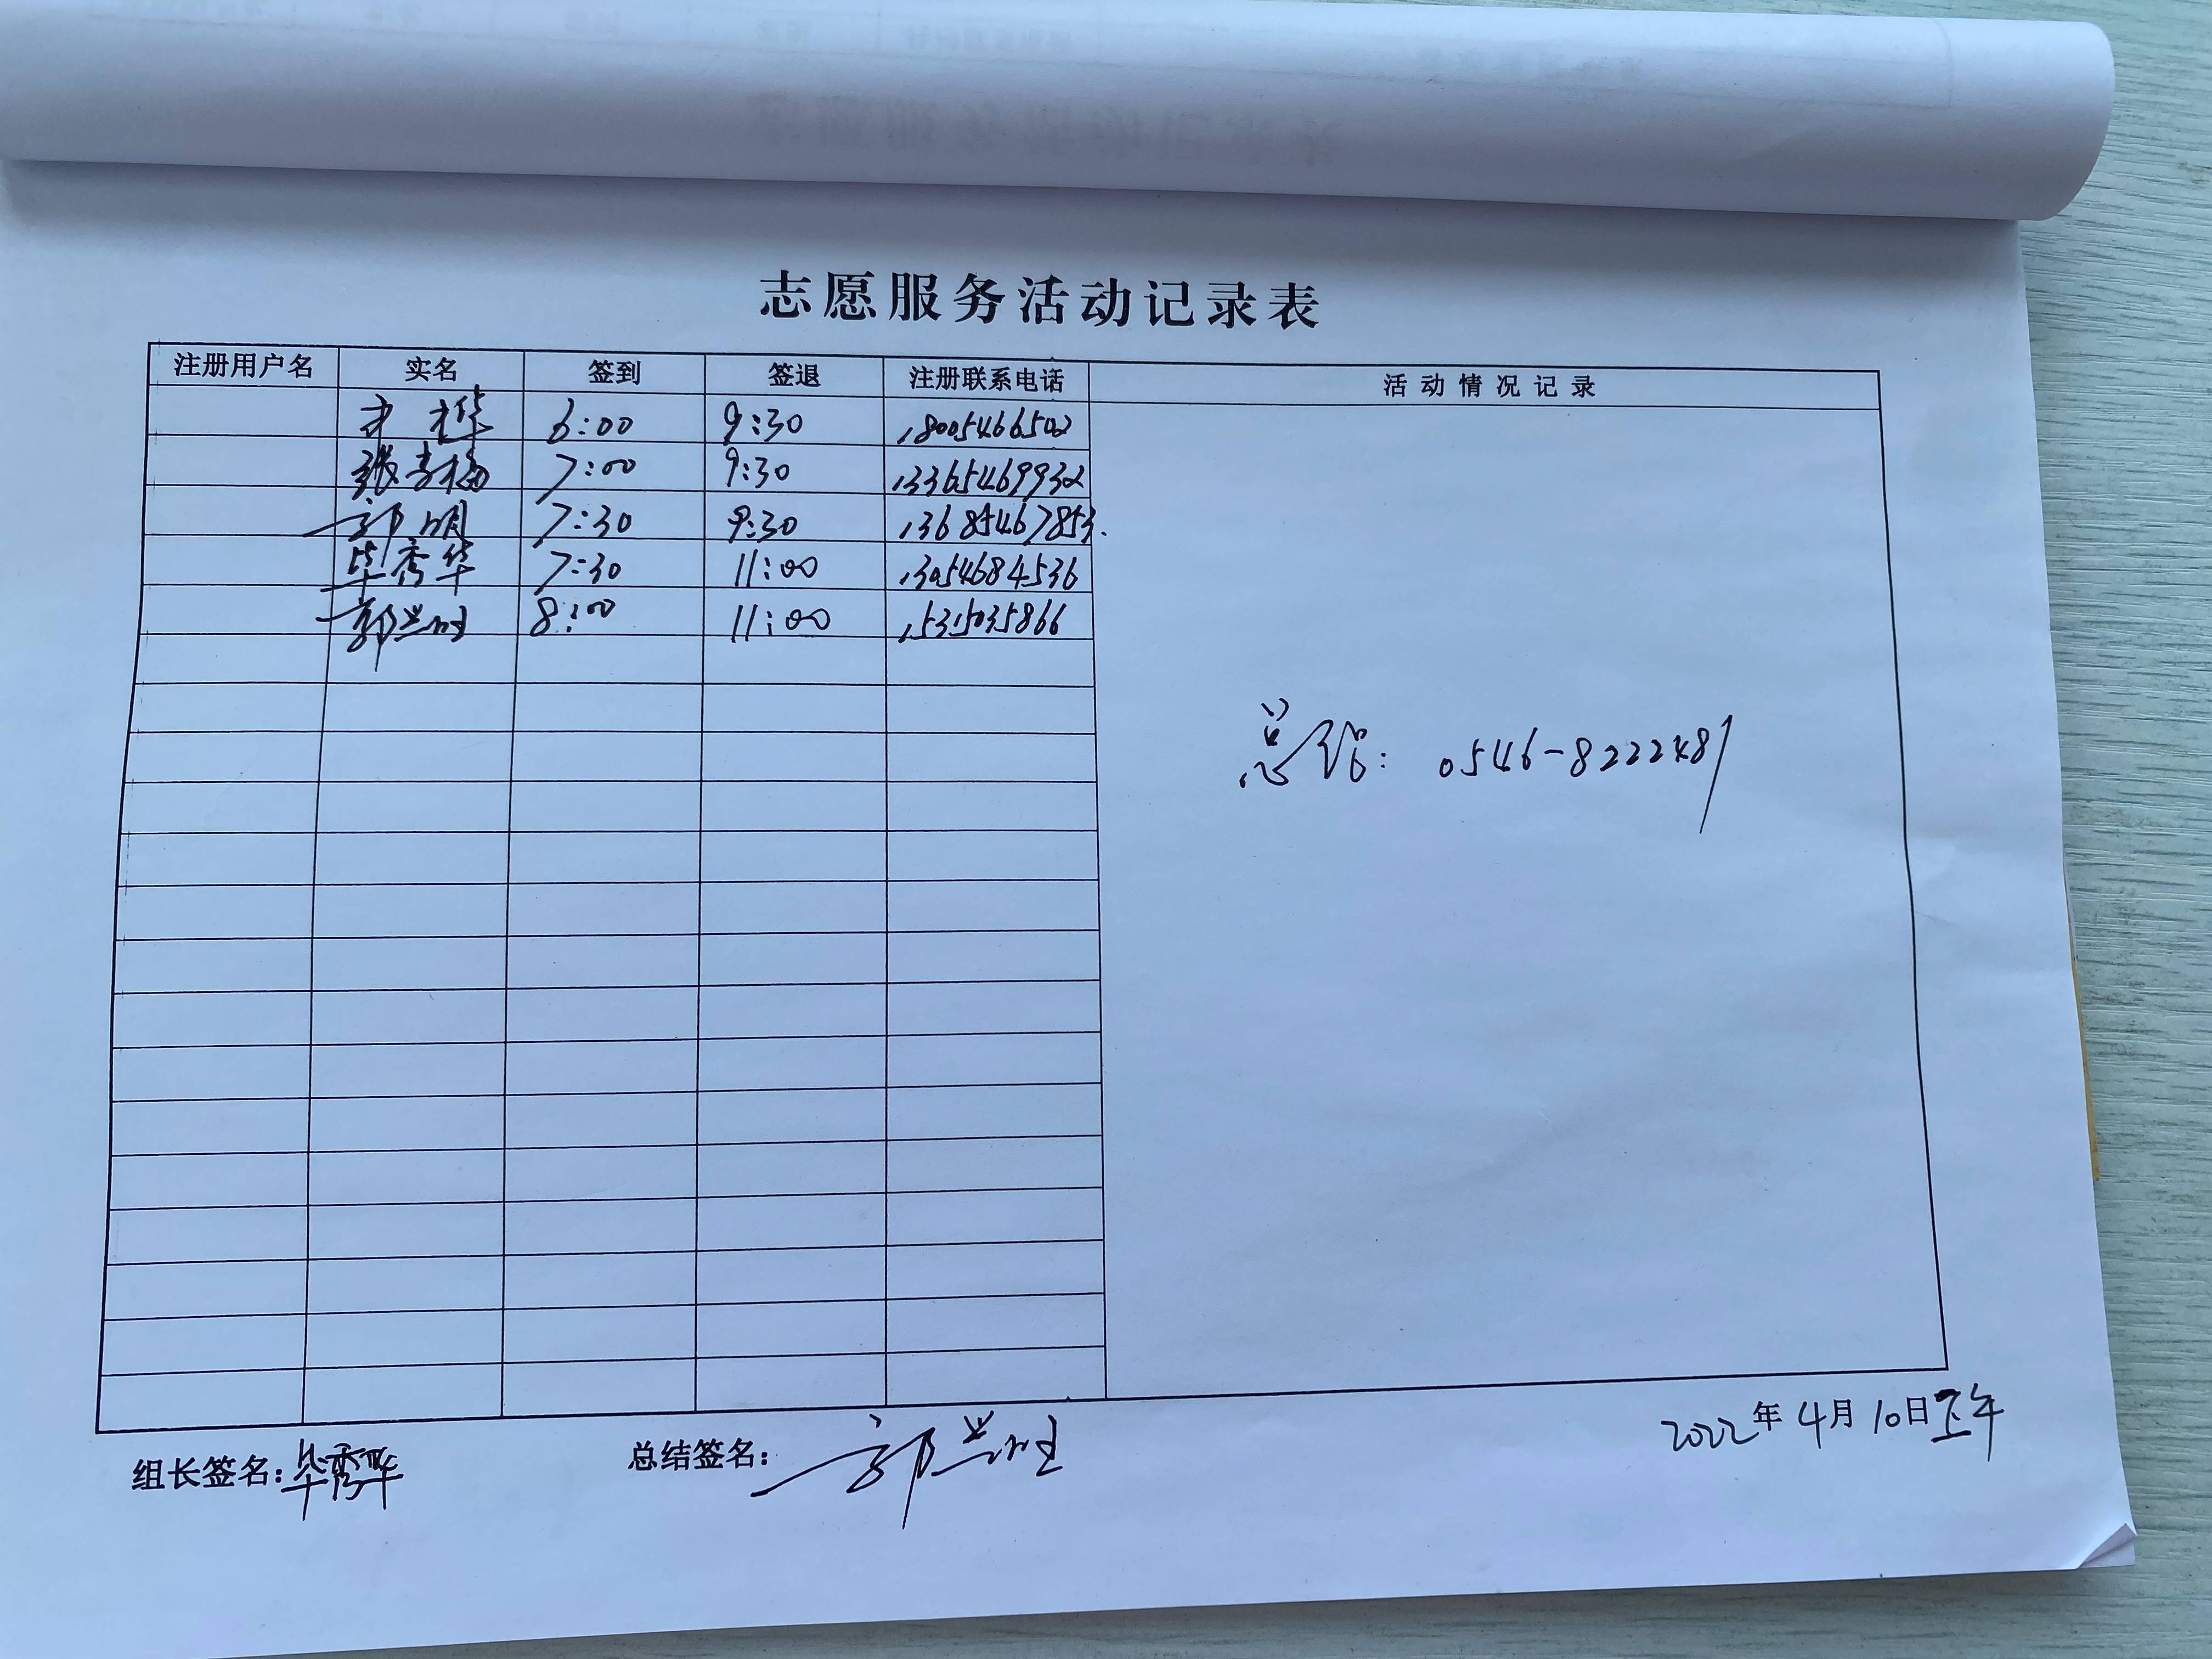 志愿服务活动记录表
注册用户名 实名 签到 签退 注册联系电话 活动情况记录
6:00 9:30 18005466502
张吉梅 7:00 9:30 13365469932
郭明 7:30 9:30 13685467853.
毕秀华 7:30 11:00 13054684536
郭兰胜 8:00 11:00 15315035866
总结: 0546-8222481
2022年4月10日
组长签名:毕秀华 总结签名:郭兰胜